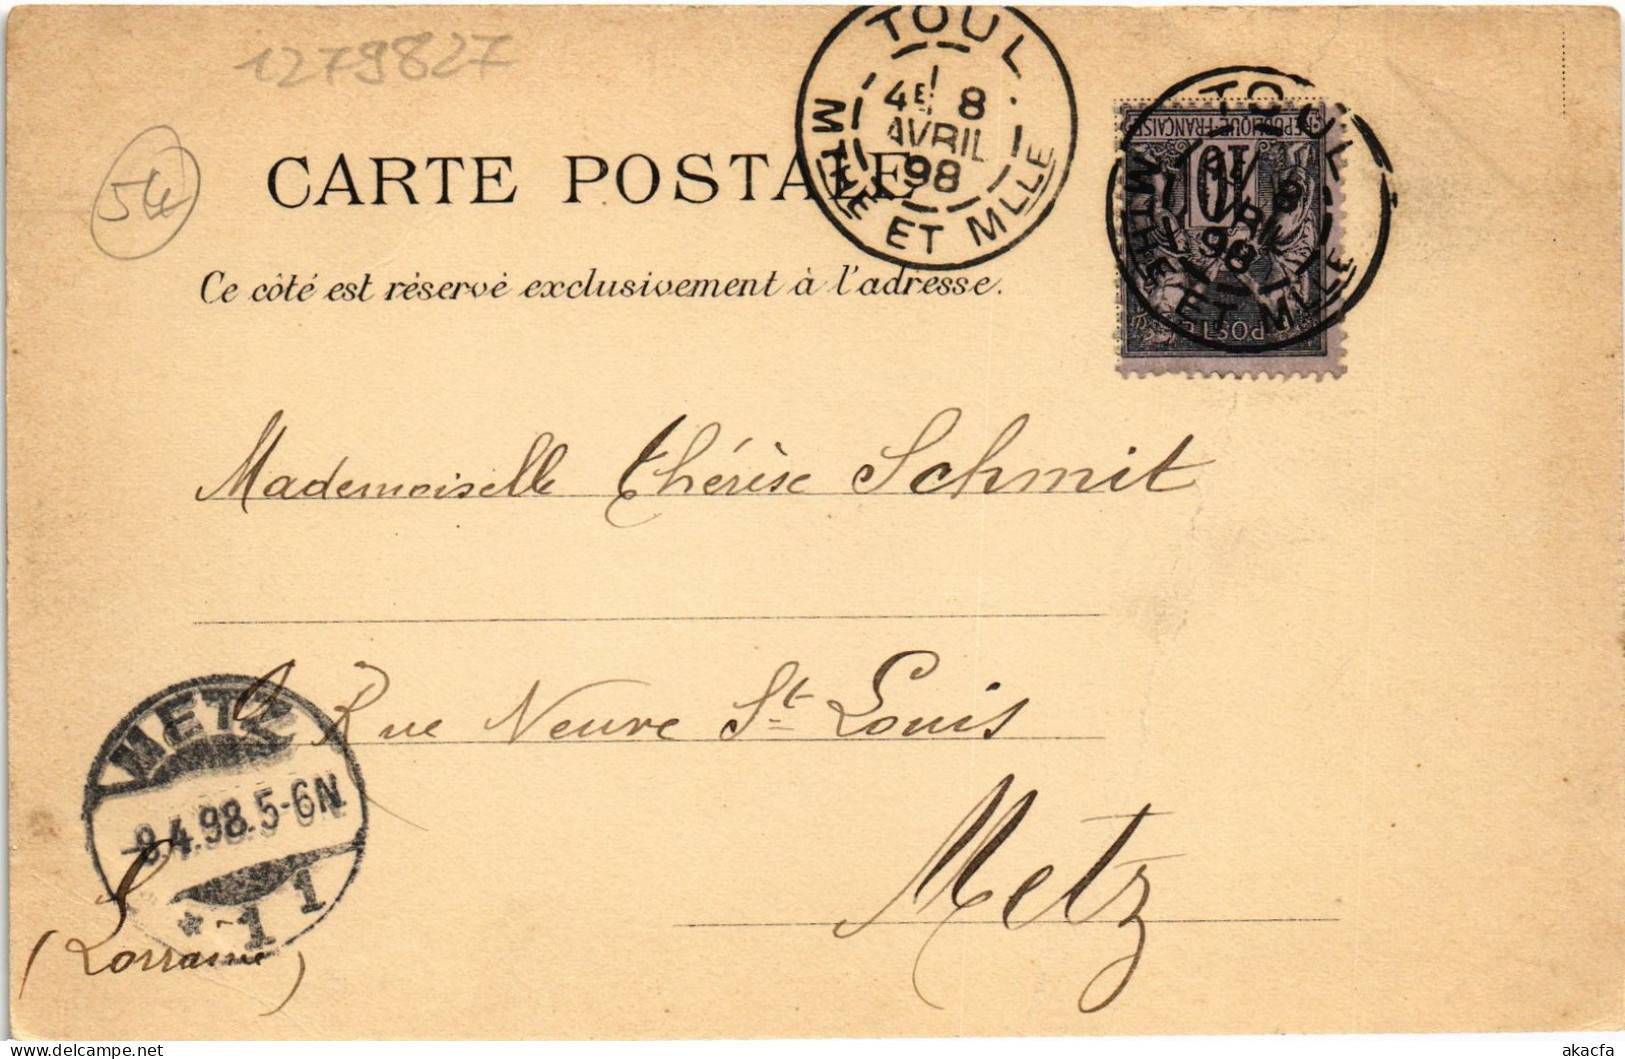 1279827
TOUL
4E 8
AVRIL
98
MTHE ET MLLE
TOUL
8
AVRIL
98
MTHE ET MLLE
REPUBLIQUE FRANÇAISE
10
POSTE
54
CARTE POSTALE
Ce côté est réservé exclusivement à l'adresse.
Mademoiselle Thérèse Schmit
Rue Neuve St Louis
METZ
-8.4.98.5-6N
* 1 1
Metz
(Lorraine)
akacfa